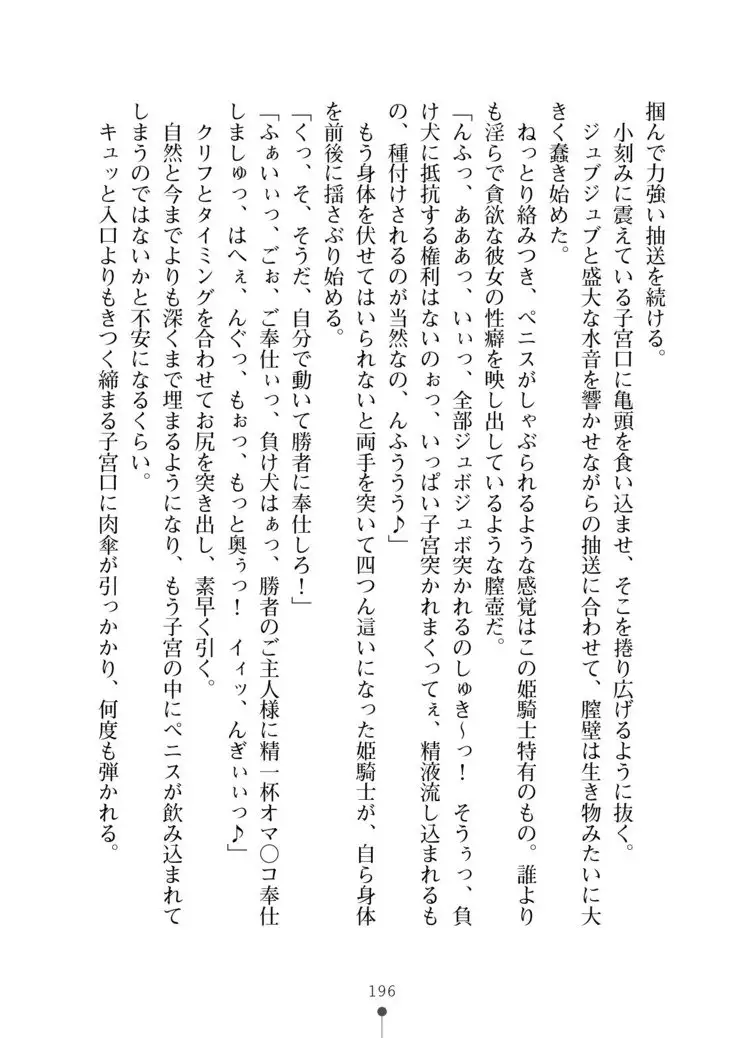 掴んで力強い抽送を続ける。
小刻みに震えている子宮口に亀頭を食い込ませ、そこを捲り広げるように抜く。
ジュブジュブと盛大な水音を響かせながらの抽送に合わせて、膣壁は生き物みたいに大
きく蠢き始めた。
ねっとり絡みつき、ペニスがしゃぶられるような感覚はこの姫騎士特有のもの。誰より
も淫らで貪欲な彼女の性癖を映し出しているような膣壺だ。
「んふっ、あああっ、いぃっ、全部ジュボジュボ突かれるのしゅき〜っ! そうぅっ、負
け犬に抵抗する権利はないのぉっ、いっぱい子宮突かれまくってぇ、精液流し込まれるも
の、種付けされるのが当然なの、んふううう♪」
もう身体を伏せてはいられないと両手を突いて四つん這いになった姫騎士が、自ら身体
を前後に揺さぶり始める。
「くっ、そ、そうだ、自分で動いて勝者に奉仕しろ!」
「ふぁいぃっ、ごぉ、ご奉仕ぃっ、負け犬はぁっ、勝者のご主人様に精一杯オマ〇コ奉仕
しましゅっ、はへぇ、んぐっ、もぉっ、もっと奥ぅっ! イィッ、んぎぃぃっ♪」
クリフとタイミングを合わせてお尻を突き出し、素早く引く。
自然と今までよりも深くまで埋まるようになり、もう子宮の中にペニスが飲み込まれて
しまうのではないかと不安になるくらい。
キュッと入口よりもきつく締まる子宮口に肉傘が引っかかり、何度も弾かれる。
196